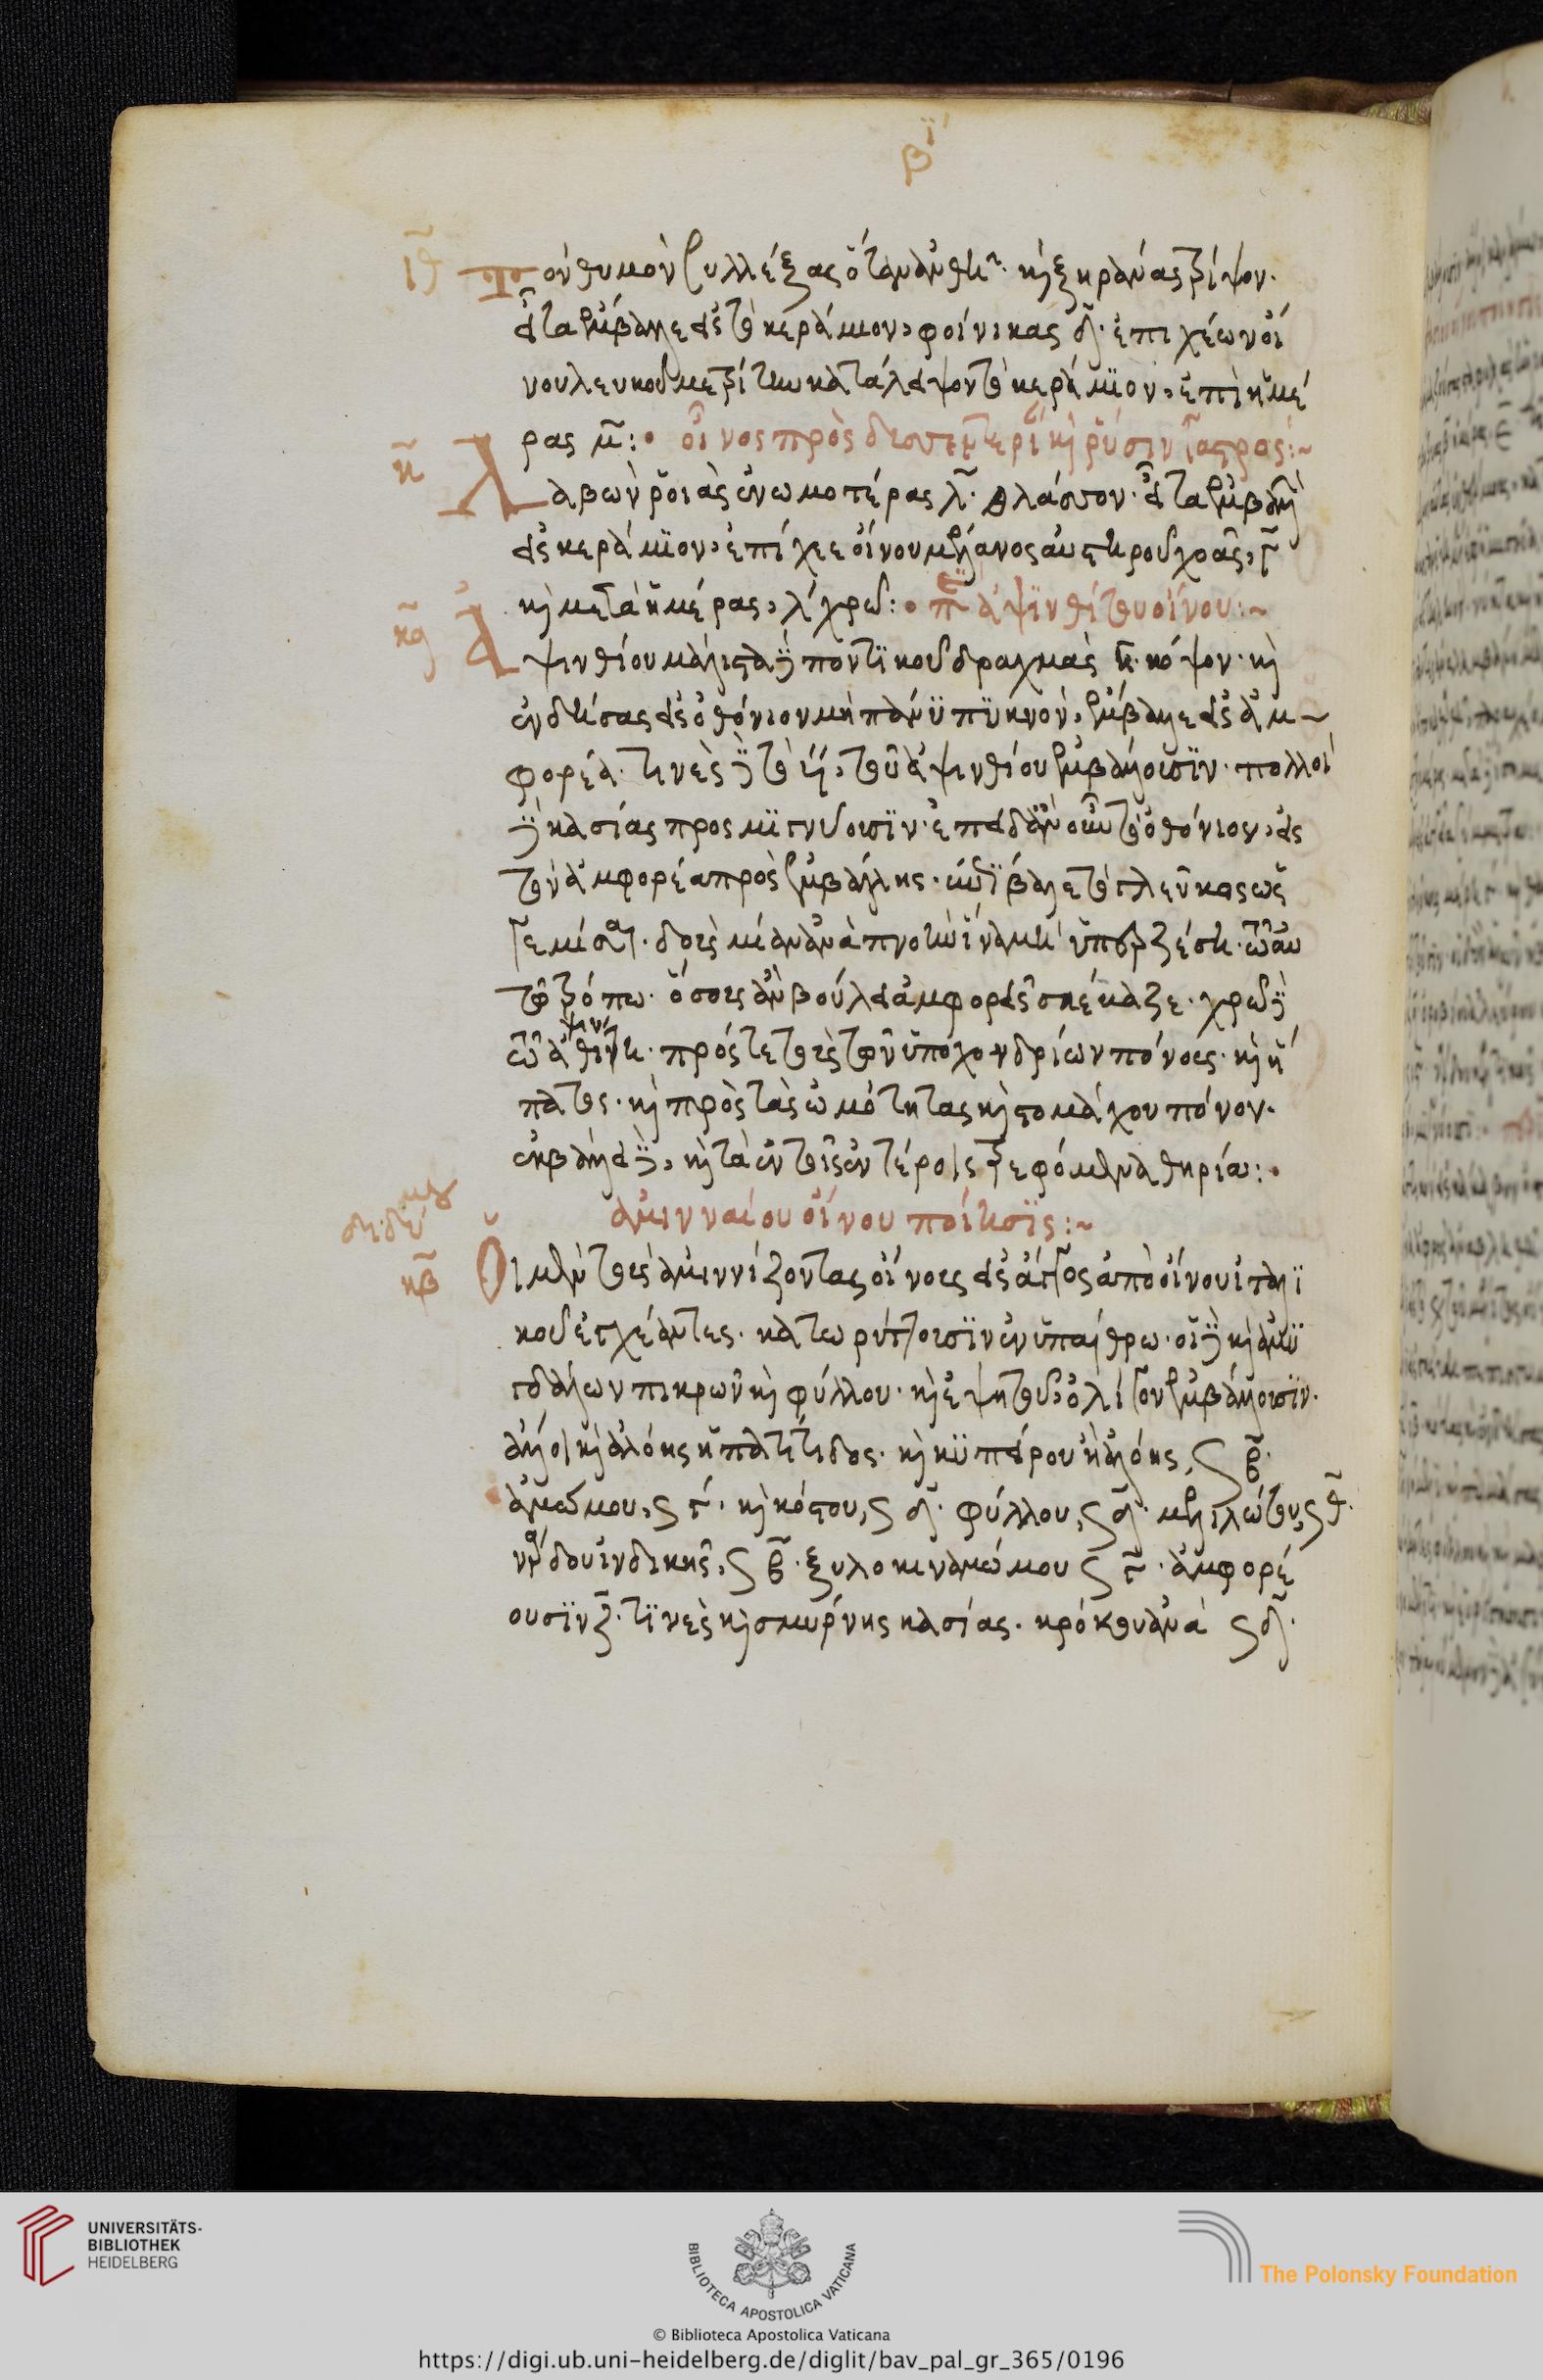 βϊ
ιθ Τὸν θυμὸν συλλέξας ὅταν ἀνθῆ· καὶ ξηράνας τρίψον.
εἶτα ἔμβαλε εἰς τὸ κεράμιον, φοίνικας δ· ἐπιχέων οἴ
νου λευκοῦ μετρίτην κατάλειψον τὸ κεράμϊον, ἐπὶ ἡμέ
ρας μ:· οἶνος πρὸς δυσεντερι καὶ ῥύσιν γαστρός:~
κ Λαβὼν ῥοιὰς λ. θλάσον· εἶτα ἔμβαλε
εἰς κεράμϊον, ἐπίχεε οἴνου μέλανος αὐστηροῦ χοᾶς, γ
καὶ μετὰ ἡμέρας, λ χρῶ:· περὶ ἀψινθίτου οἴνου:~
κα Ἀψινθίου μάλιστα δὲ ποντϊκοῦ δραχμὰς η. κόψον· καὶ
ἐνδήσας εἰς ὀθόνιον μὴ πάνϋ πϋκνὸν, ἔμβαλε εἰς ἀμ~
φορέα. τινὲς δὲ τὸ ιη, τοῦ ἀψινθίου ἐμβάλουσϊν. πολλοὶ
δὲ κασίας προσμϊγνύουσϊν· ἐπειδὰν οὖν τὸ ὀθόνιον, εἰς
τὸν ἀμφορέα προσεμβάλλης. βάλε τὸ γλεῦκος ὡς
γεμίσαι. δοὺς μίαν ἀναπνοὴν ἵνα μὴ ὑπερζέση. τούτω
τῷ τρόπω. ὅσους ἂν βούλει ἀμφορεῖς σκέναζε. χρῶ δὲ
τῶ ἀψινθίτη. πρός τε τοὺς τῶν ὑποχονδρίων πόνους. καὶ ἥ
πατος. καὶ πρὸς τὰς ὠμότητας καὶ στομάχου πόνον.
ἐκβάλει δὲ, καὶ τὰ ἐν τοῖς ἐντέροις τρεφόμενα θηρία:·
διδύμου ἀμινναίου οἴνου ποίησϊς:~
κβ Οἱ μὲν τοὺς ἀμιννίζοντας οἴνους εἰς ἄγγος ἀπὸ οἴνου ἰταλϊ
κοῦ ἐγχέαντες. κατωρύττουσϊν ἐν ὑπαίθρω. οἱ δὲ καὶ ἀμϋ
γδάλων πικρῶν καὶ φύλλου. καὶ ἑψητοῦ, ὀλίγον ἐμβάλουσϊν.
ἄλλοι καὶ ἀλόης ἡπατίτιδος. καὶ κϋπέρου καὶ ἀλόης, ϛ β.
ἀμώμου, ϛ γ. καὶ κόστου, ϛ δ. φύλλου, ϛ δ. μελιλώτου, ϛ δ.
νάρδου ἰνδικῆς, ϛ β. ξυλοκιναμώμου ϛ γ. ἀμφορέ
ουσϊν ζ. τϊνὲς καὶ σμύρνης κασίας. κρόκου ἀνὰ ϛ δ.
UNIVERSITÄTS-
BIBLIOTHEK
HEIDELBERG
BIBLIOTECA APOSTOLICA VATICANA
The Polonsky Foundation
© Biblioteca Apostolica Vaticana
https://digi.ub.uni-heidelberg.de/diglit/bav_pal_gr_365/0196